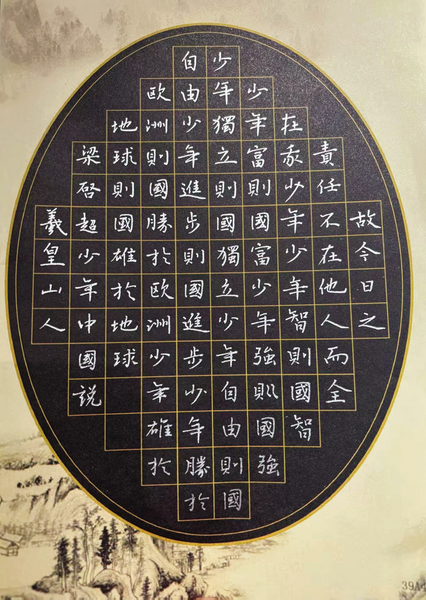 故今日之
責任不在他人而全
在我少年少年智則國智
少年富則國富少年強則國強
少年獨立則國獨立少年自由則國
自由少年進步則國進步少年勝於
歐洲則國勝於歐洲少年雄於
地球則國雄於地球
梁啓超少年中國説
羲皇山人
39A4